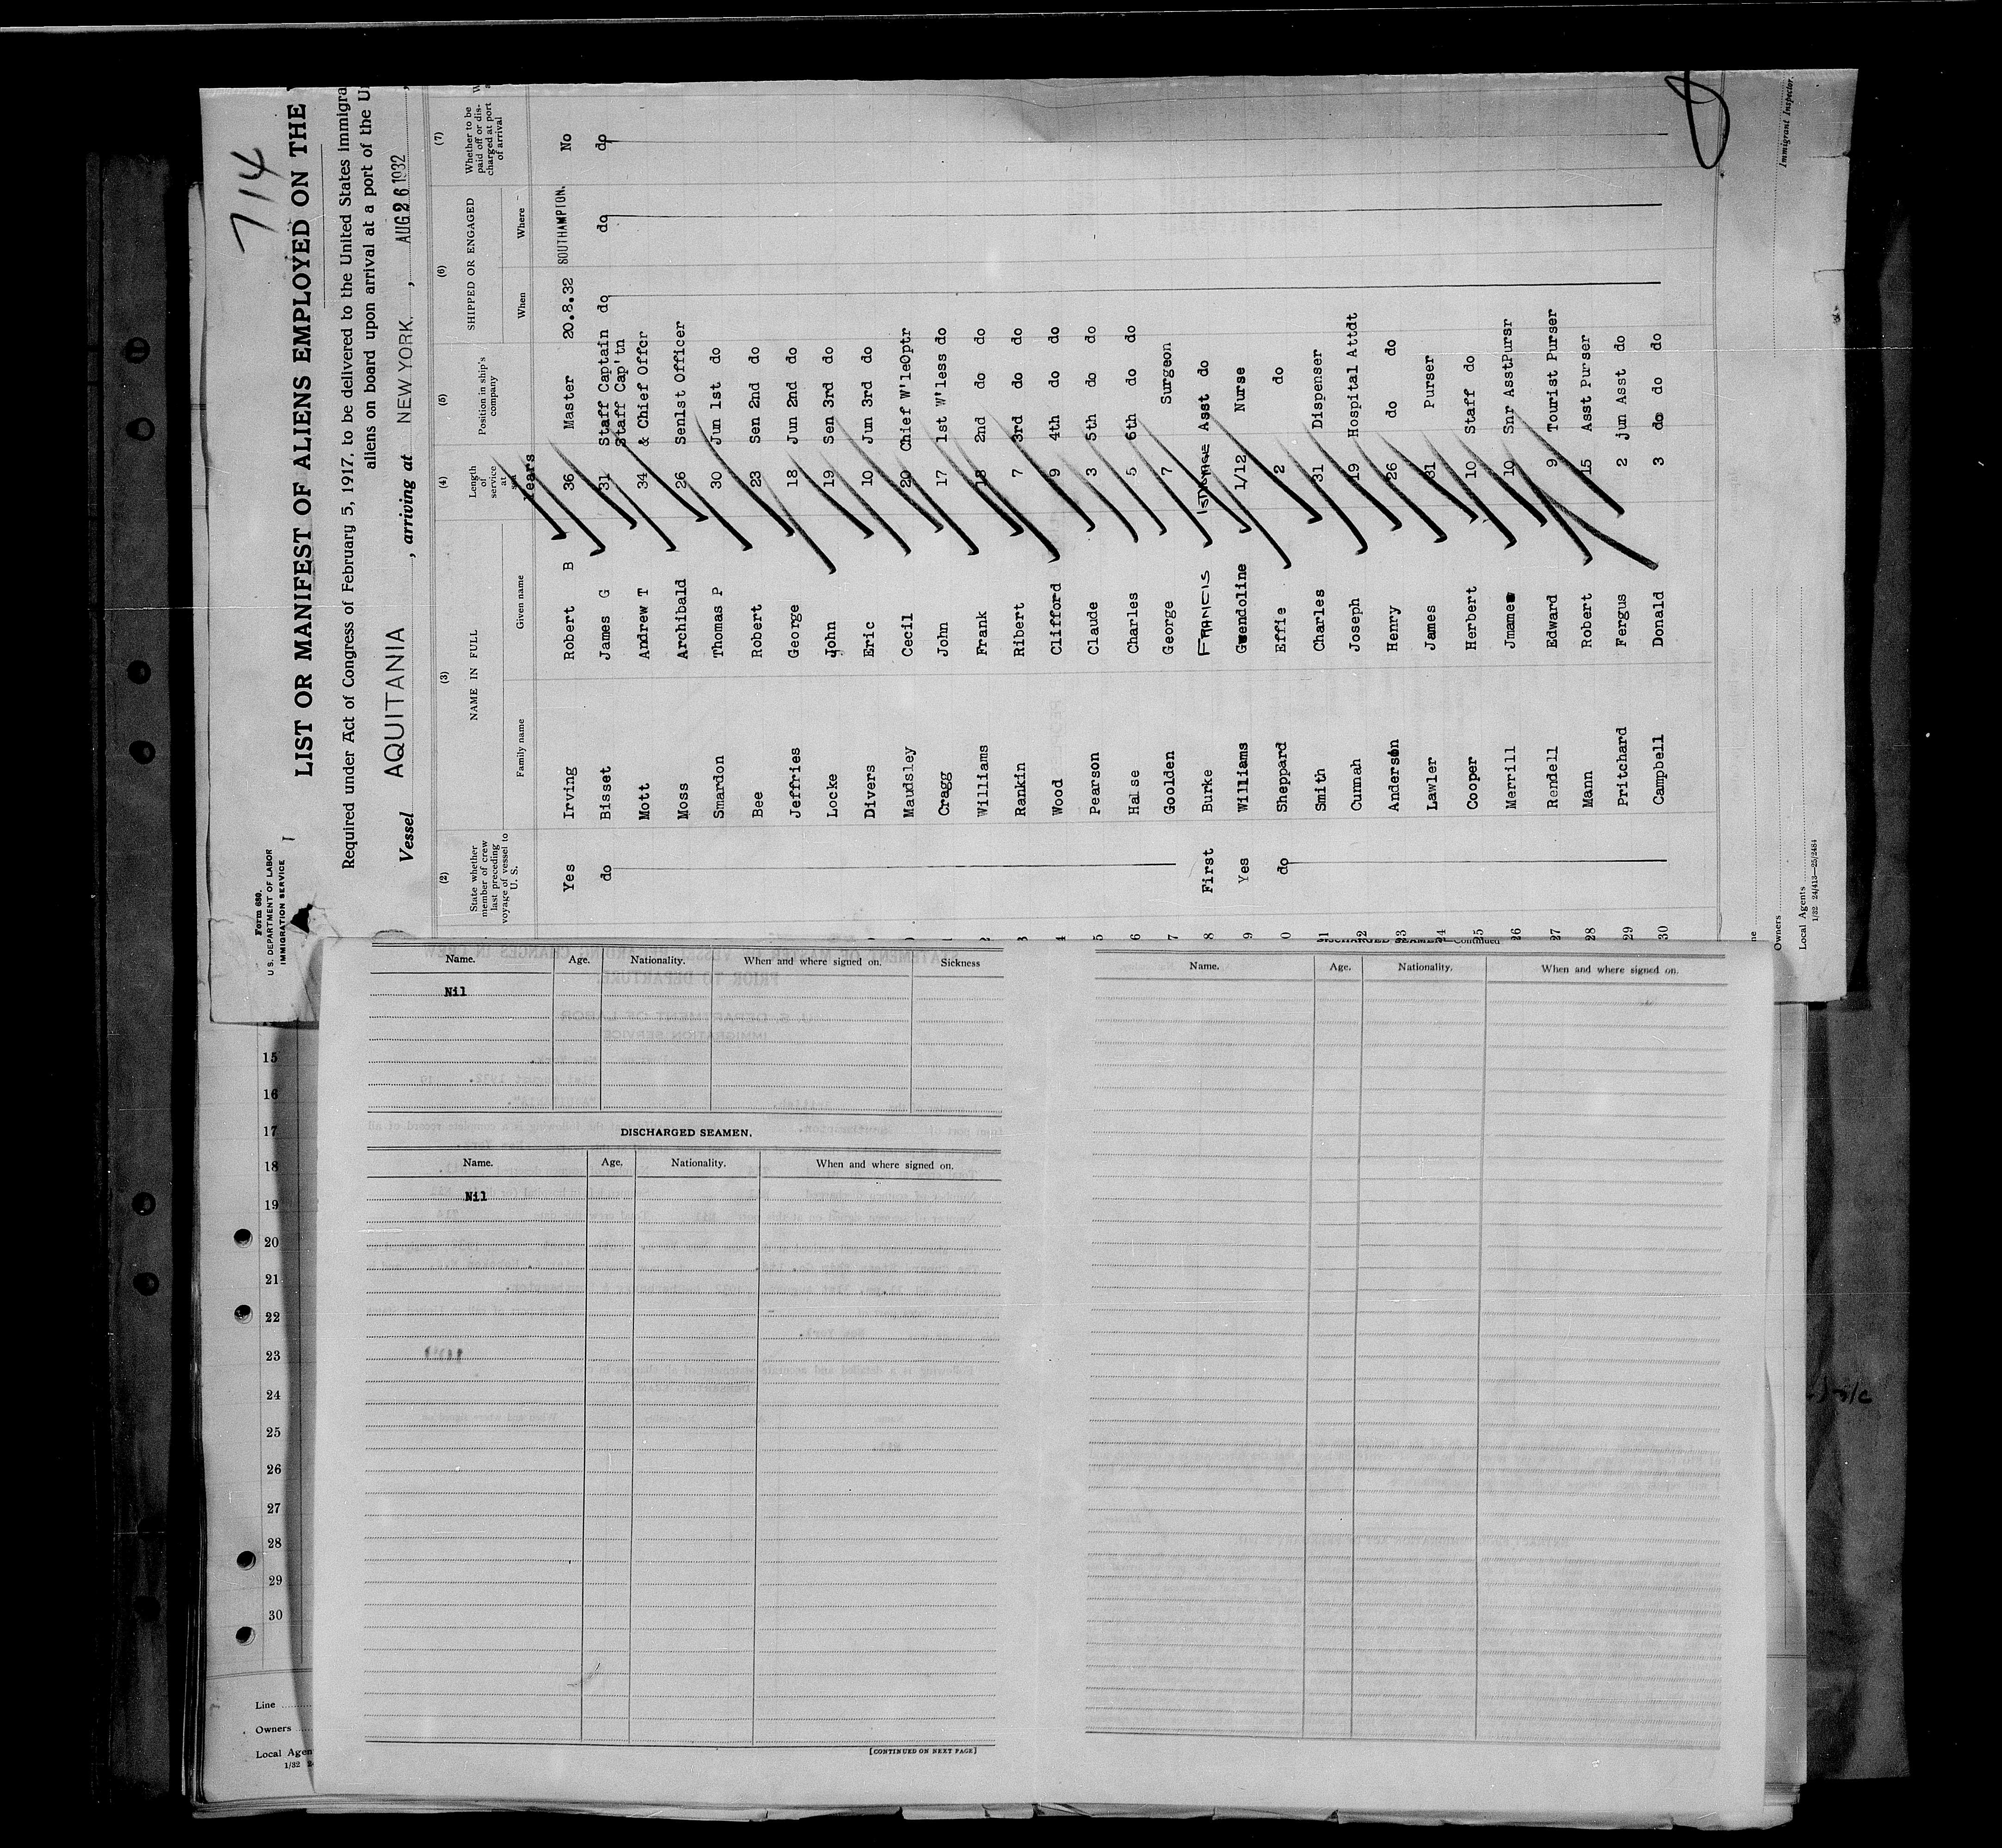 714
Form 680.
U. S. DEPARTMENT OF LABOR
IMMIGRATION SERVICE
LIST OR MANIFEST OF ALIENS EMPLOYED ON THE
Required under Act of Congress of February 5, 1917, to be delivered to the United States immigra
aliens on board upon arrival at a port of the U
Vessel AQUITANIA, arriving at NEW YORK, AUG 26 1932,
(2) (3) (4) (5) (6) (7)
State whether member of crew last preceding voyage of vessel to U. S. NAME IN FULL Length of service at Position in ship's company SHIPPED OR ENGAGED Whether to be paid off or discharged at port of arrival
Family name Given name Years When Where
Yes Irving Robert B 36 Master 20.8.32 SOUTHAMPTON. No
do Bisset James G 31 Staff Captain do do do
Staff Cap'tn
Mott Andrew T 34 & Chief Offcr
Moss Archibald 26 Sen1st Officer
Smardon Thomas P 30 Jun 1st do
Bee Robert 23 Sen 2nd do
Jeffries George 18 Jun 2nd do
Locke John 19 Sen 3rd do
Divers Eric 10 Jun 3rd do
Maudsley Cecil 20 Chief W'leOptr
Cragg John 17 1st W'less do
Williams Frank 18 2nd do do
Rankin Ribert 7 3rd do do
Wood Clifford 9 4th do do
Pearson Claude 3 5th do do
Halse Charles 5 6th do do
7 Goolden George 7 Surgeon
8 First Burke FRANCIS Asst do
9 Yes Williams Gwendoline 1/12 Nurse
0 do Sheppard Effie 2 do
1 Smith Charles 31 Dispenser
2 Cumnah Joseph 19 Hospital Attdt
23 Anderson Henry 26 do do
24 Lawler James 31 Purser
25 Cooper Herbert 10 Staff do
26 Merrill Jmames 10 Snr AsstPursr
27 Rendell Edward 9 Tourist Purser
28 Mann Robert 15 Asst Purser
29 Pritchard Fergus 2 jun Asst do
30 Campbell Donald 3 do do do
Owners
Local Agents
1/32 24/413—25/2484
Immigrant Inspector.
Name. Age. Nationality. When and where signed on. Sickness
Nil
DISCHARGED SEAMEN.
Name. Age. Nationality. When and where signed on.
Nil
[CONTINUED ON NEXT PAGE]
DISCHARGED SEAMEN—Continued
Name. Age. Nationality. When and where signed on.
15
16
17
18
19
20
21
22
23
24
25
26
27
28
29
30
Line
Owners
Local Agen
1/32